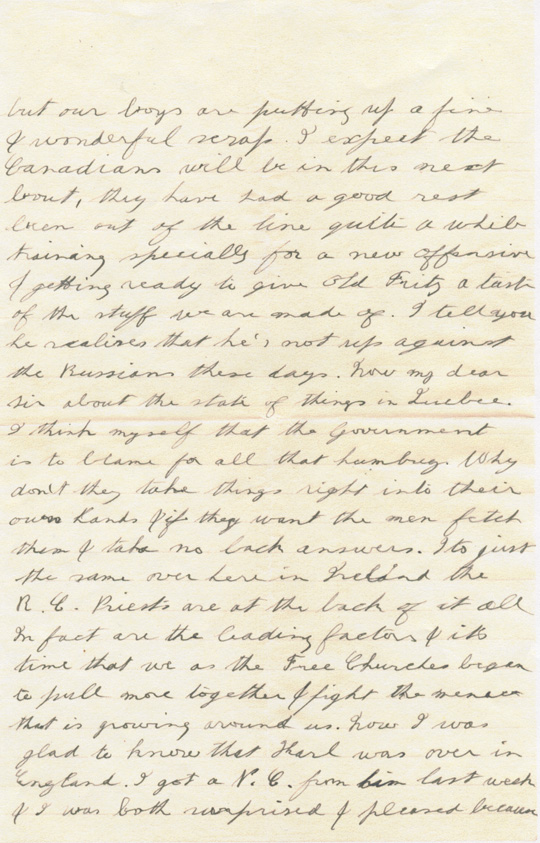 but our boys are putting up a fine
& wonderful scrap. I expect the
Canadians will be in this next
bout, they have had a good rest
been out of the line quite a while
training specially for a new offensive
& getting ready to give Old Fritz a taste
of the stuff we are made of. I tell you
he realises that he's not up against
the Russians these days. Now my dear
sir about the state of things in Quebec.
I think myself that the Government
is to blame for all that humbug. Why
don't they take things right into their
own hands & if they want the men fetch
them & take no back answers. Its just
the same over here in Ireland the
R. C. Priests are at the back of it all
In fact are the leading factors & its
time that we as the Free Churches began
to pull more together & fight the menace
that is growing around us. Now I was
glad to know that Karl was over in
England. I got a P. C. from him last week
& I was both surprised & pleased because